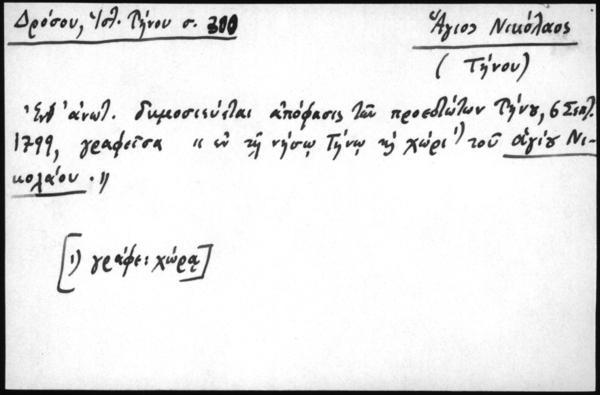 Δρόσου, Ἱστ. Τήνου σ. 300
Ἅγιος Νικόλαος
(Τήνου)
Ἐνθ' ἀνωτ. δημοσιεύεται ἀπόφασις τῶν προεστώτων Τήνου, 6 Σεπτ.
1799, γραφεῖσα « ἐν τῇ νήσῳ Τήνῳ τῇ χώρι¹) τοῦ ἁγίου Νι-
κολάου.»
[1) γράφει χώρᾳ]